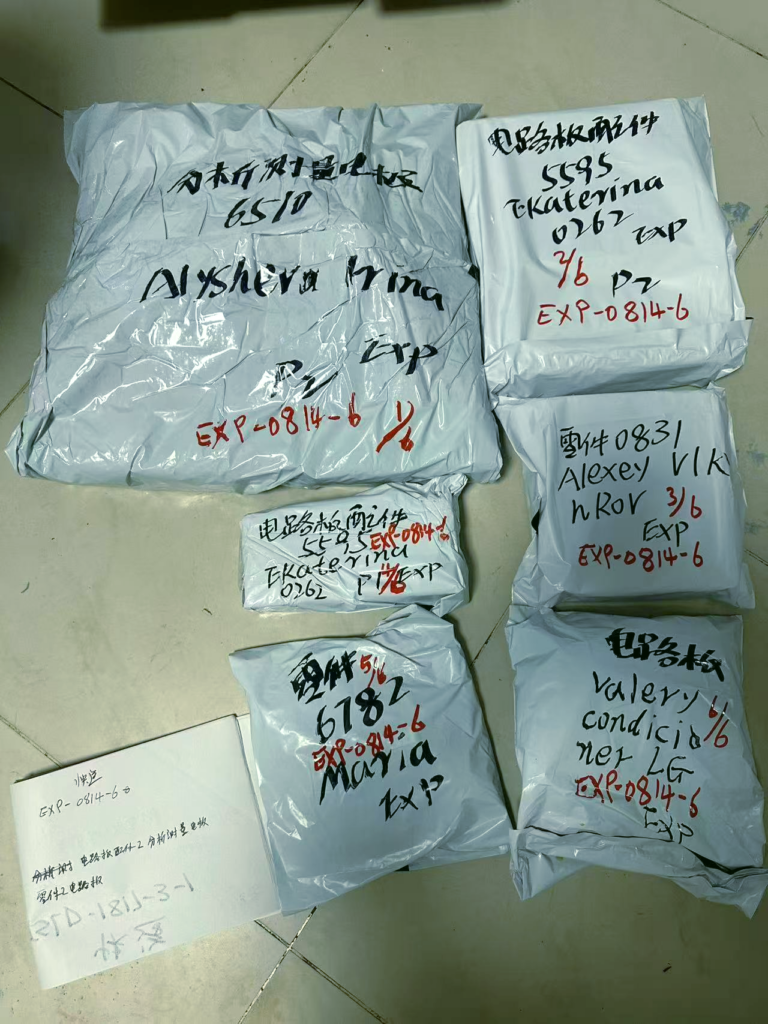 分析测量电极
6510
Alysheva Irina
Exp
P2
EXP-0814-6 1/6
电路板配件
5595
Ekaterina
0262
Exp
2/6 P2
EXP-0814-6
零件0831
Alexey VIK
nRov 3/6
EXP
EXP-0814-6
电路板配件
5595 EXP-0814-6
Ekaterina
0262 P1 EXP
零件 5/6
6782
EXP-0814-6
Maria
EXP
电路板
Valery 6/6
condicio
ner LG
EXP-0814-6
Exp
快运
EXP-0814-6
电路板配件2 分析测量电极
零件2 电路板